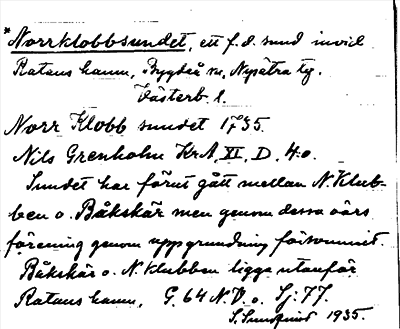 *Norrklobbsundet, ett f.d. sund invid
Ratans hamn, Bygdeå sn, Nysätra tg.
Västerb. l.
Norr Klobb sundet 1735.
Nils Grenholm KrA XI. D. 4:o.
Sundet har förut gått mellan N. Klub-
ben o. Båkskär men genom dessa öars
förening genom uppgrundning försvunnit.
Båkskär o. N. Klubben ligga utanför
Ratans hamn. G. 64 N.V. o. Sj: 77.
1935.